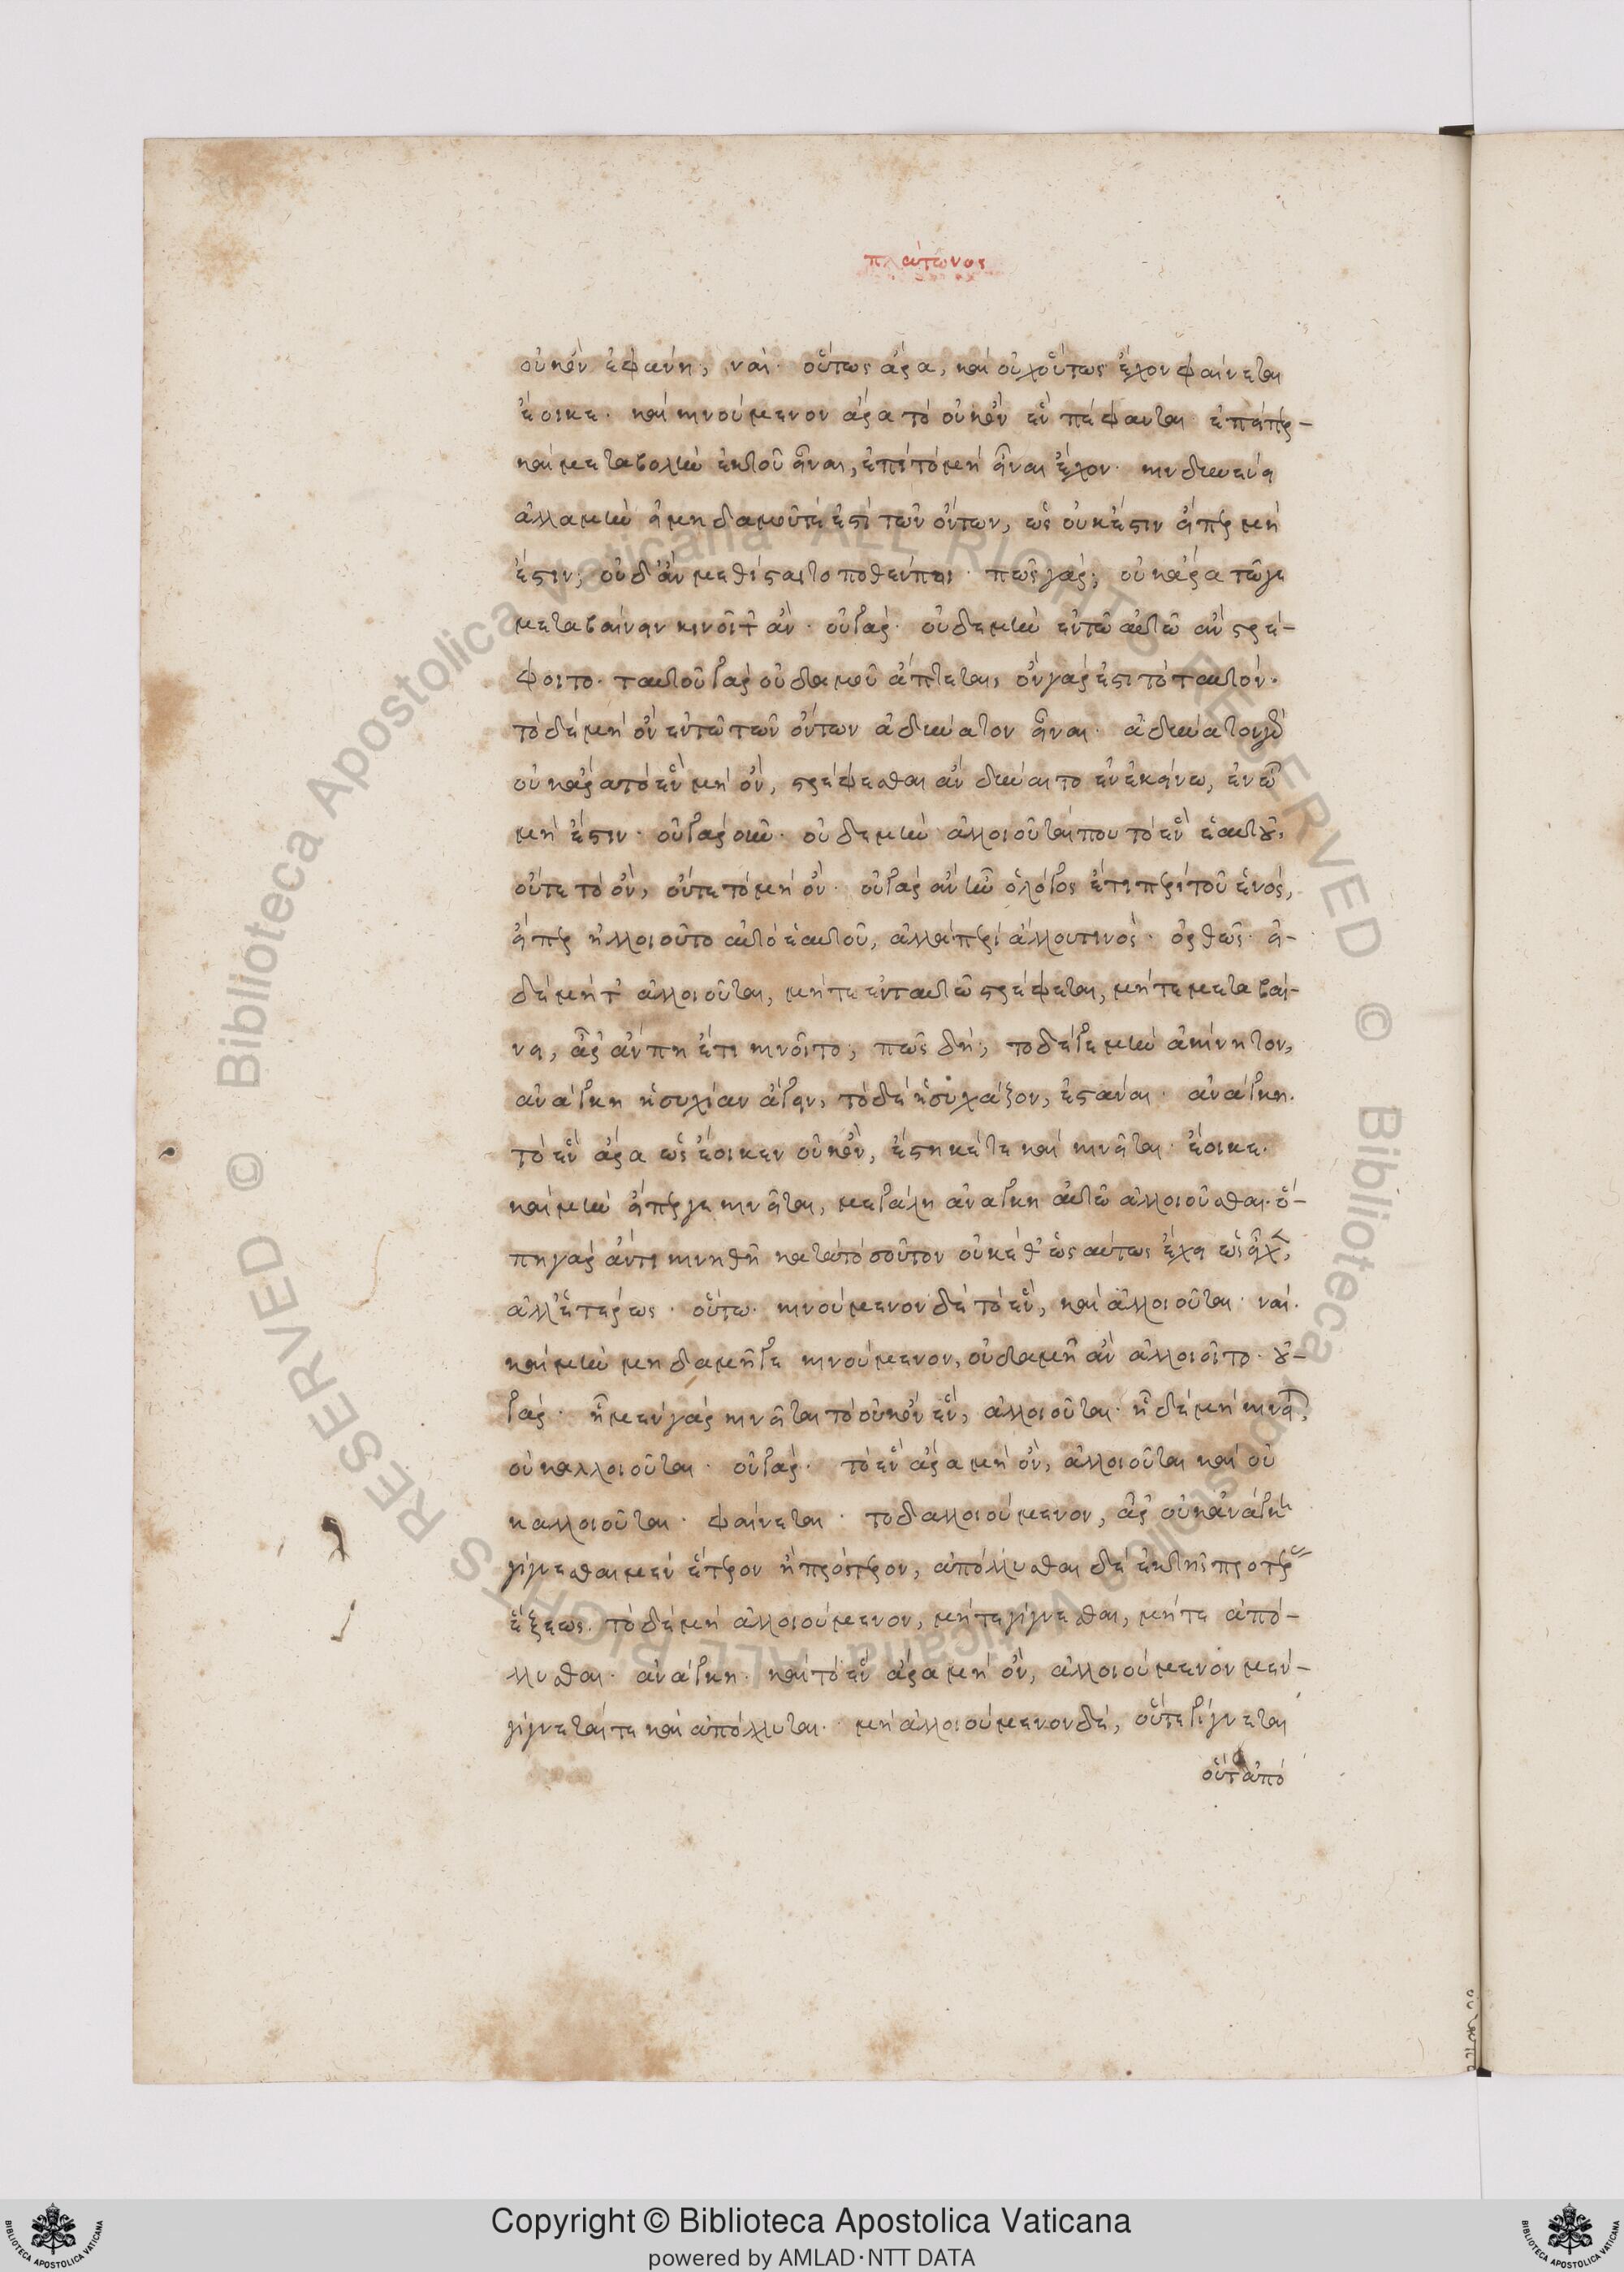 πλάτωνος
οὐκὸν ἐφάνη; ναί· οὕτως ἄρα, καὶ οὐχοὕτως ἔχον φαίνεται
ἔοικε· καὶ κινούμενον ἄρα τὸ οὐκὸν ἓν πέφανται ἐπείπερ-
καὶ μεταβολὴν ἐκτοῦ εἶναι, ἐπὶ τὸ μὴ εἶναι ἔχον· κινδυνεύει
ἀλλαμὴν εἰ μηδαμοῦτέ ἐστι τῶν ὄντων, ὡς οὐκέστιν εἴπερ μὴ
ἔστιν, οὐδ' ἂν μεθίσταιτο ποθένποι· πῶς γάρ; οὐκἄρα τῶγε
μεταβαίνειν κινοῖτ ἄν· οὐγάρ· οὐδεμὴν ἐντῶ αὐτῶ ἂν στρέ-
φοιτο· ταυτοῦ γὰρ οὐδαμοῦ ἅπτεται, ὂν γάρ ἐστι τὸ ταυτόν·
τὸ δὲ μὴ ὂν ἐντῶ τῶν ὄντων ἀδύνατον εἶναι· ἀδύνατον γὰρ
οὐκἄρα τὸ ἓν μὴ ὂν, στρέφεσθαι ἂν δύναιτο ἐν ἐκείνω, ἐν ὧ
μὴ ἔστιν· οὐγὰρ οὖν· οὐδεμὴν ἀλλοιοῦταί που τὸ ἓν ἑαυτοῦ,
οὔτε τὸ ὂν, οὔτε τὸ μὴ ὄν· οὐγὰρ ἂν ἦν ὁ λόγος ἔτι περὶ τοῦ ἑνός,
εἴπερ ἠλλοιοῦτο αὐτὸ ἑαυτοῦ, ἀλλὰ περὶ ἄλλου τινός· ὀρθῶς· εἰ-
δὲ μήτ' ἀλλοιοῦται, μήτε ἐνταυτῶ στρέφεται, μήτε μεταβαί-
νει, ἆρ' ἄν πη ἔτι κινοῖτο; πῶς δή; τὸ δέ γε μὴν ἀκίνητον,
ἀνάγκη ἡσυχίαν ἄγειν, τὸ δὲ ἡσυχάζον, ἑστάναι· ἀνάγκη.
τὸ ἓν ἄρα ὡς ἔοικεν οὐκὸν, ἕστηκέ τε καὶ κινεῖται· ἔοικε.
καὶ μὴν εἴπερ γε κινεῖται, μεγάλη ἀνάγκη αὐτῶ ἀλλοιοῦσθαι· ὅ-
πη γὰρ ἄν τι κινηθῆ κατατόσοῦτον οὐκέθ' ὡς αύτως ἔχει ὡς εἶχεν,
ἀλλ' ἑτέρως· οὕτω· κινούμενον δὲ τὸ ἓν, καὶ ἀλλοιοῦται· ναί.
καὶ μὴν μηδαμῆ γε κινούμενον, οὐδαμῆ ἂν ἀλλοιοῖτο· οὐ-
γάρ· ἧ μὲν γὰρ κινεῖται τὸ οὐκὸν ἓν, ἀλλοιοῦται· ἧ δὲ μὴ κινεῖται,
οὐκαλλοιοῦται· οὐγάρ· τὸ ἓν ἄρα μὴ ὂν, ἀλλοιοῦται καὶ οὐ
καλλοιοῦται· φαίνεται· τὸ δαλλοιούμενον, ἆρ' οὐκἀνάγκη
γίγνεσθαι μὲν ἕτερον ἢ πρότερον, ἀπόλλυσθαι δὲ ἐκτῆς προτέρας
ἕξεως. τὸ δὲ μὴ ἀλλοιούμενον, μήτε γίγνεσθαι, μήτε ἀπό-
λλυσθαι· ἀνάγκη· καὶ τὸ ἓν ἄρα μὴ ὂν, ἀλλοιούμενον μὲν-
γίγνεταί τε καὶ ἀπόλλυται· μὴ ἀλλοιούμενον δὲ, οὔτε γίγνεται
οὔτ ἀπό
Copyright © Biblioteca Apostolica Vaticana
powered by AMLAD·NTT DATA
© Biblioteca Apostolica Vaticana ALL RIGHTS RESERVED
© Biblioteca Apostolica Vaticana ALL RIGHTS RESERVED
BIBLIOTECA APOSTOLICA VATICANA
BIBLIOTECA APOSTOLICA VATICANA